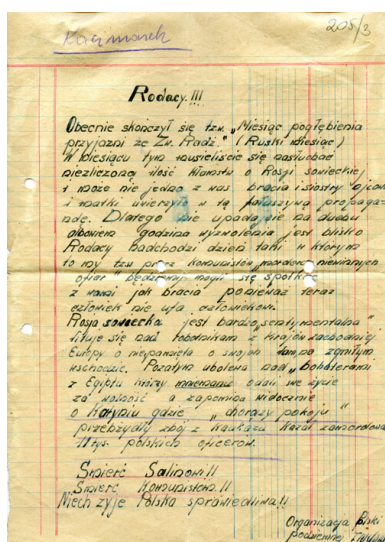 Kaczmarek
205/3
Rodacy!!!
Obecnie skończył się tzw. „Miesiąc pogłębienia
przyjaźni ze Zw. Radz." (Ruski miesiąc)
W miesiącu tym musieliście się nasłuchać
niezliczoną ilość kłamstw o Rosji sowieckiej
i może nie jedno z was bracia i siostry ojcowie
i matki uwierzyło w tą fałszywą propagan-
dę. Dlatego nie upadajcie na duchu
albowiem godzina wyzwolenia jest blisko
Rodacy nadchodzi dzień taki w którym
to my tzw przez komunistów „morderc niewinnych
ofiar" będziemy mogli się spotkać
z wami jak bracia ponieważ teraz
człowiek nie ufa człowiekowi.
Rosja sowiecka jest bardzo „sentymentalna"
lituje się nad robotnikami z krajów zachodniej
Europy o niepamięta o swojém tam na zgniłym
wschodzie. Pozatym ubolewa nad „bohaterami
z Egiptu którzy mniemanie oddali swe życie
za wolność a zapomina widocznie
o Katyniu gdzie „chorąży pokoju"
przebrzydły zbój z Kaukazu kazał zamordować
11 tys. polskich oficerów.
Śmierć Salinowi!!
Śmierć Komunistom!!
Niech żyje Polska sprawiedliwa!!
Organizacja Polski
podziemnej